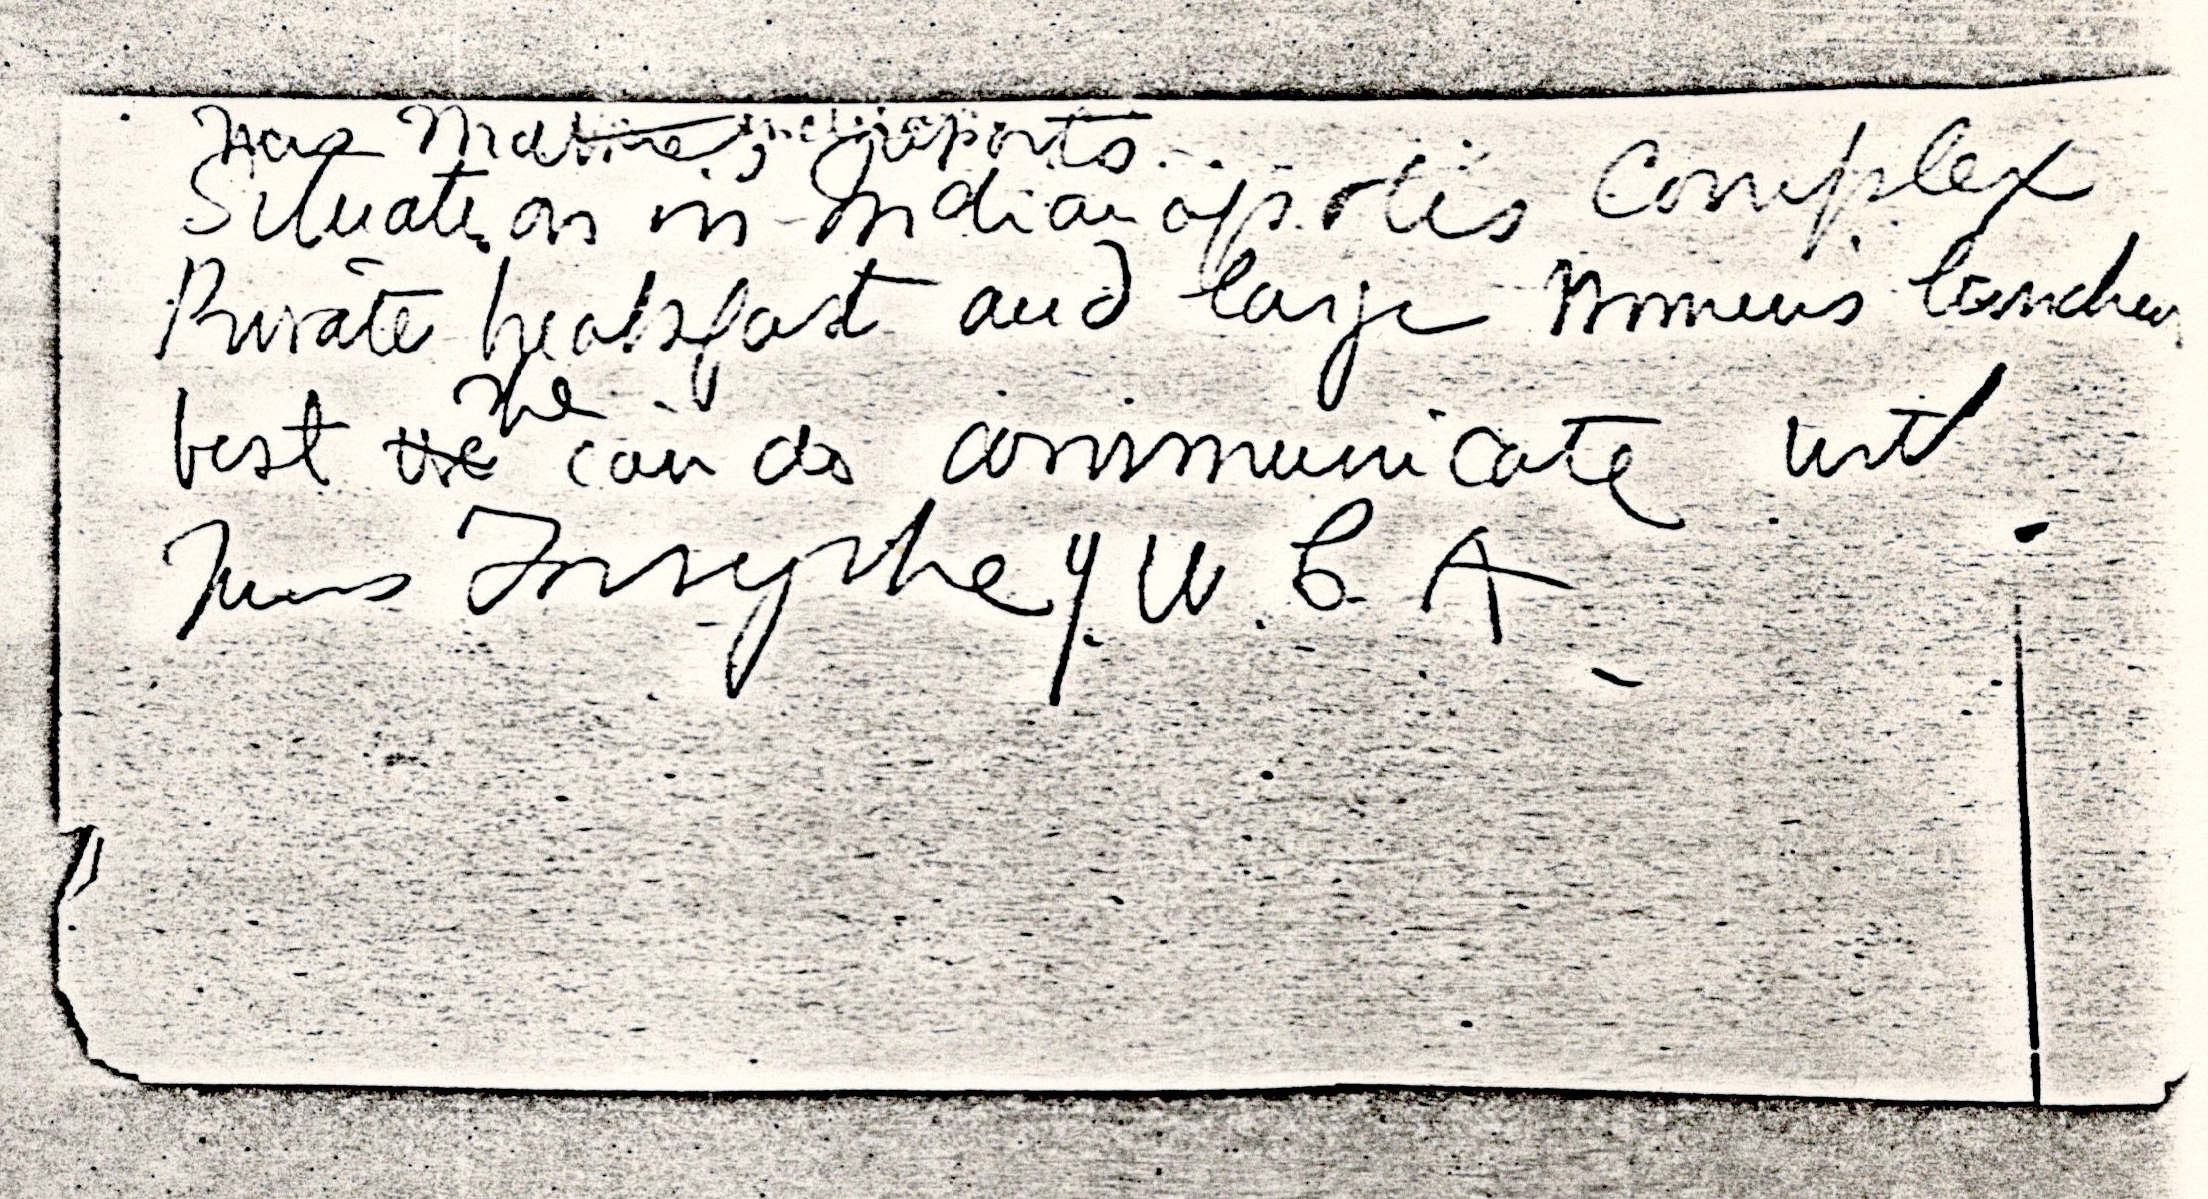 Situation in Indianapolis Complex
Private breakfast and large Womens lunchen
best we she can do communicate with
Miss Forsythe Y. W. C. A.